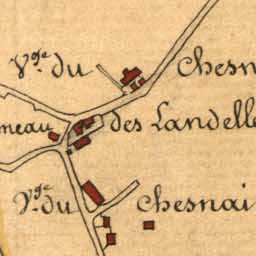 Vge du Chesn
meau des Landelle
Vge du Chesnai